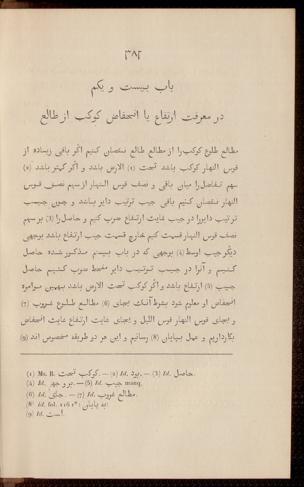 [٣٨٦]
باب بیست و یکم
در معرفت ارتفاع یا انحطاط کوکب از طالع
مطالع طلوع کوکب را از مطالع طالع نقصان کنیم اگر باقی زیاده از
قوس النهار کوکب باشد تحت (1) الارض باشد و اگر کمتر باشد (2)
سهم تفاضل را میان باقی و نصف قوس النهار از سهم نصف قوس
النهار نقصان کنیم باقی جیب ترتیب دایر باشد و چون جیب
ترتیب دایر را در جیب غایت ارتفاع ضرب کنیم و حاصل را (3) بر سهم
نصف قوس النهار قسمت کنیم خارج قسمت جیب ارتفاع باشد بوجهی
دیگر جیب اوسط (4) بوجهی که در باب بیستم مذکور شده حاصل
کنیم و آنرا در جیب ترتیب دایر منحط ضرب کنیم حاصل
جیب (5) ارتفاع باشد و اگر کوکب تحت الارض باشد بهمین موامره
انحطاط او معلوم شود بشرط آنکه بجای (6) مطالع طلوع غروب (7)
و بجای قوس النهار قوس اللیل و بجای غایت ارتفاع غایت انحطاط
بکار داریم و عمل بپایان (8) رسانیم و این هر دو طریقه مخصوص اند (9)
(1) Ms. B. کوکب تحت. — (2) Id. بود. — (3) Id. حاصل.
(4) Id. — (5) Id. جیب manq.
(6) Id. جای. — (7) Id. مطالع غروب.
(8) Id. بپایان.
(9) Id. است.